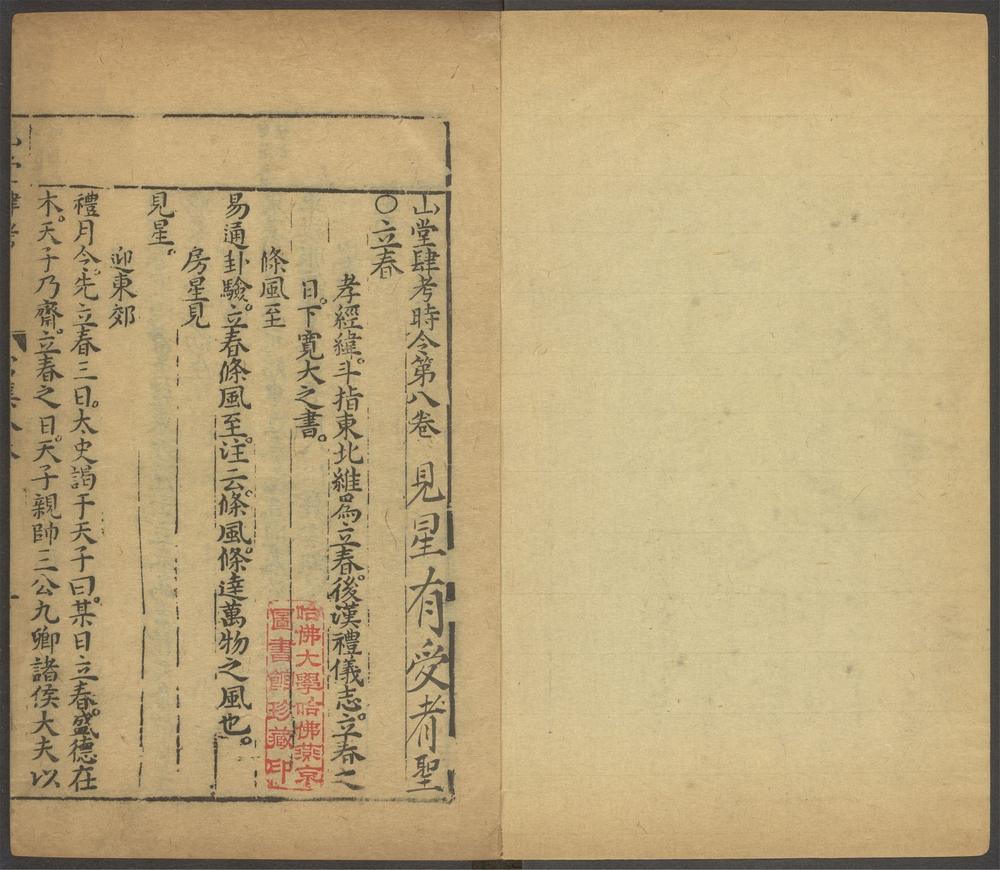 山堂肆考時令第八卷 見星有受者聖
〇立春
孝經緯。斗指東北維爲立春。後漢禮儀志。立春之
日。下寛大之書。
條風至
易通卦驗。立春條風至。注云。條風。條達萬物之風也。
房星見
見星。
迎東郊
禮月令。先立春三日。太史謁于天子曰。某日立春。盛德在
木。天子乃齋。立春之日。天子親帥三公九卿諸侯大夫以
哈佛大學哈佛燕京
圖書館珍藏印